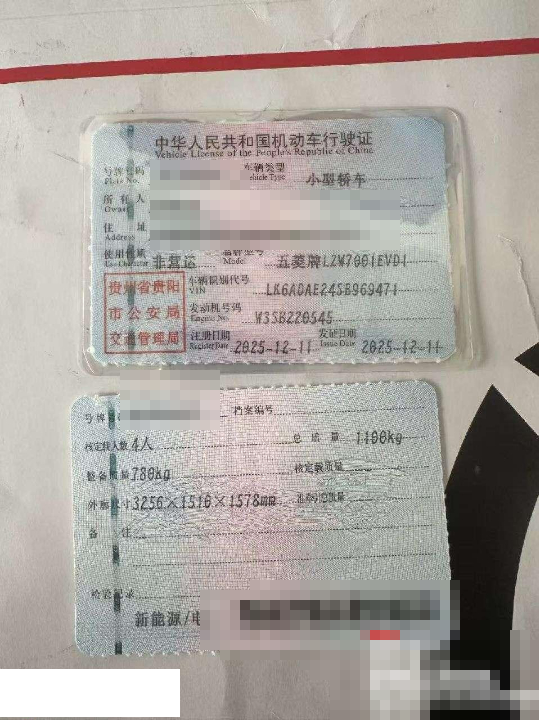 中华人民共和国机动车行驶证
Vehicle License of the People's Republic of China
号牌号码 车辆类型 小型轿车
Plate No. Vehicle Type
所有人
Owner
住 址
Address
使用性质 非营运 品牌型号 五菱牌LZW7001EVD1
Use Character Model
贵州省贵阳
市公安局
交通管理局
车辆识别代号 LK6ADAE24SB969471
VIN
发动机号码 W3SB220545
Engine No.
注册日期 2025-12-11 发证日期 2025-12-11
Register Date Issue Date
号牌 档案编号
核定载人数 4人 总质量 1100kg
整备质量 780kg 核定载质量
外廓尺寸 3256×1510×1578mm 准牵引总质量
备 注
检验记录
新能源/电